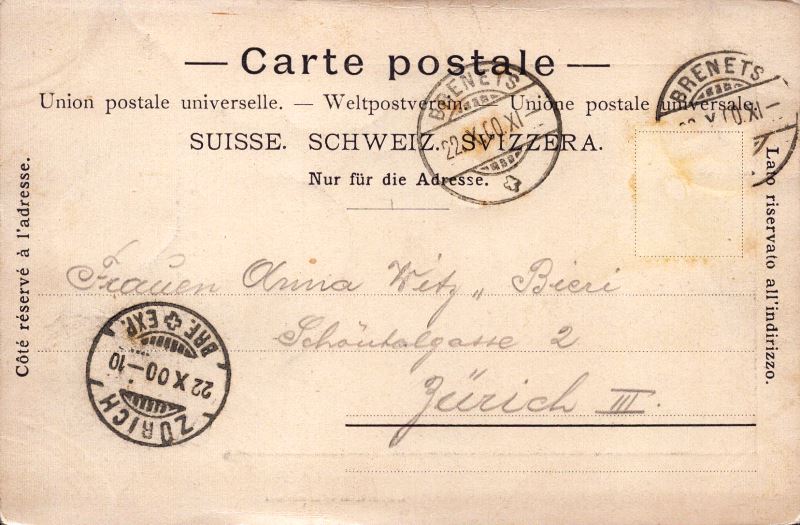 — Carte postale —
Union postale universelle. — Weltpostverein. — Unione postale universale.
SUISSE. SCHWEIZ. SVIZZERA.
Nur für die Adresse.
Côté réservé à l'adresse.
Lato riservato all'indirizzo.
BRENETS
22.X.00.XI
BRENETS
X.00.XI
Frauen Anna Witz „ Bieri
Schöntalgasse 2
Zürich III
BRF. EXP.
22 X 00–10
ZÜRICH